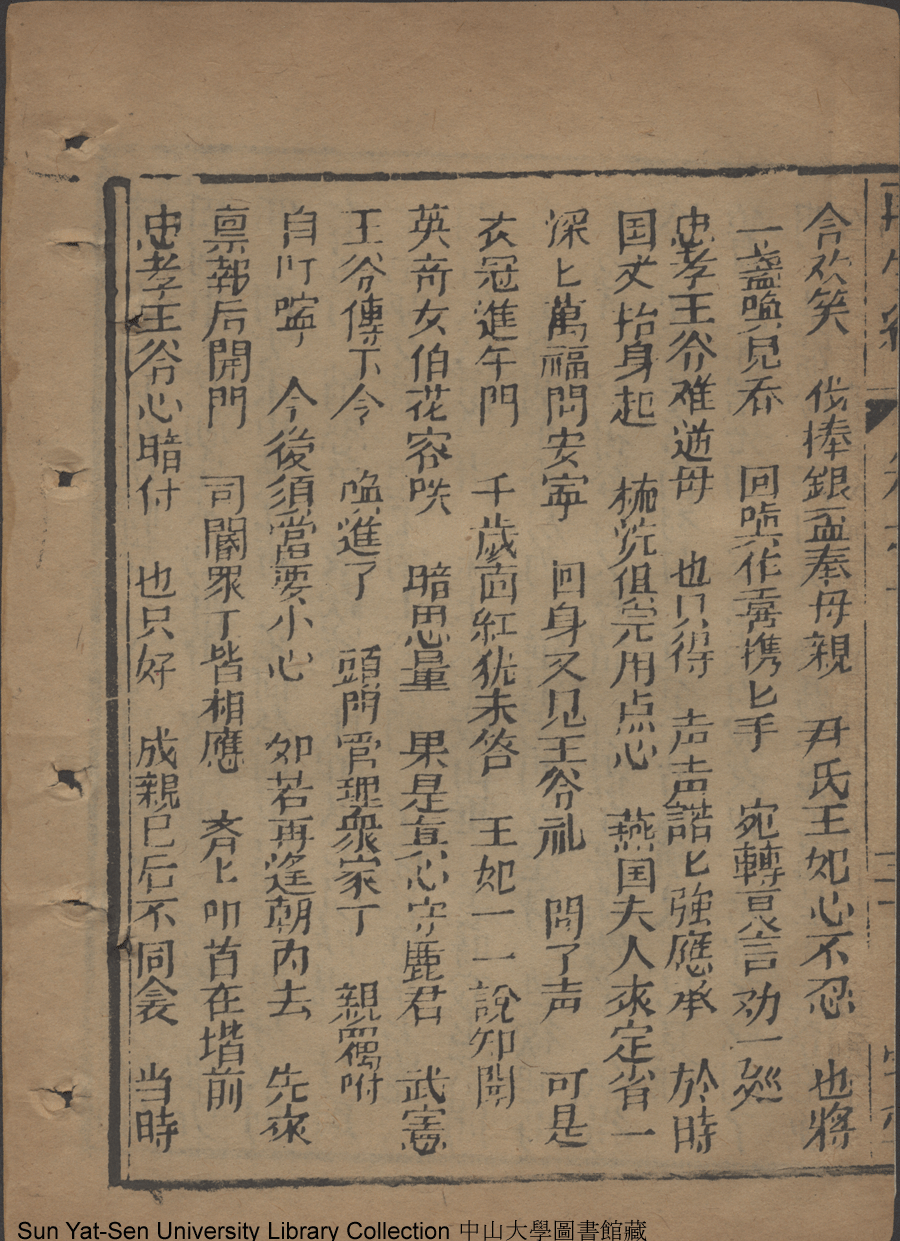 含欢笑　伐捧銀盃奉母親　尹氏王妃心不忍　也將
一盞喚見吞　回嗔作喜携匕手　宛轉良言劝一廵
忠孝王爷难逆母　也只得　声声諾匕強應承　於時
国丈抬身起　梳洗俱完用点心　燕国夫人來定省一
深匕萬福問安寧　回身又见王爷礼　問了声　可是
衣冠進午門　千歲面紅犹未答　王妃一一說知聞
英奇女伯花容咲　暗思量　果是真心守麗君　武憲
王爷傳下令　喚進了　頭門管理衆家丁　親嘱咐
自叮嚀　今後須當要小心　如若再逢朝内去　先來
禀報后開門　司閽眾丁皆相應　斉匕叩首在堦前
忠孝王爷心暗忖　也只好　成親已后不同衾　当時
Sun Yat-Sen University Library Collection 中山大學圖書館藏